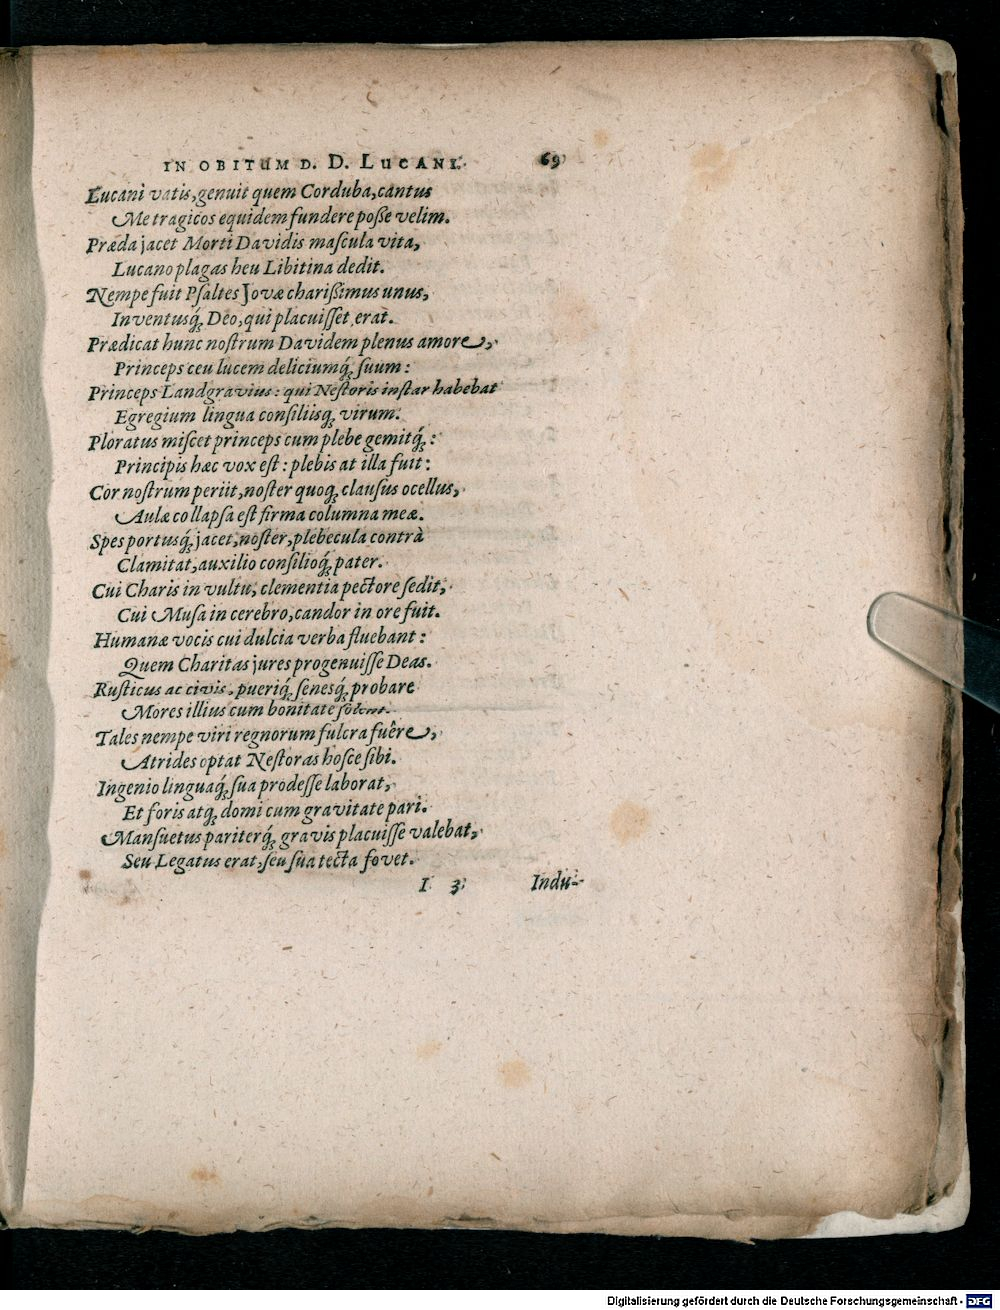 IN OBITUM D. D. LUCANI. 69
Lucani vatis, genuit quem Corduba, cantus
Me tragicos equidem fundere poße velim.
Præda jacet Morti Davidis maſcula vita,
Lucano plagas heu Libitina dedit.
Nempe fuit Pſaltes Jovæ charißimus unus,
Inventusq́; Deo, qui placuiſſet, erat.
Prædicat hunc noſtrum Davidem plenus amore,
Princeps ceu lucem deliciumq́; ſuum:
Princeps Landgravius: qui Neſtoris inſtar habebat
Egregium lingua conſiliisq́; virum.
Ploratus miſcet princeps cum plebe gemitq́;:
Principis hæc vox eſt: plebis at illa fuit:
Cor noſtrum periit, noſter quoq; clauſus ocellus,
Aulæ collapſa eſt firma columna meæ.
Spes portusq́; jacet, noſter, plebecula contrà
Clamitat, auxilio conſilioq́; pater.
Cui Charis in vultu, clementia pectore ſedit,
Cui Muſa in cerebro, candor in ore fuit.
Humanæ vocis cui dulcia verba fluebant:
Quem Charitas jures progenuiſſe Deas.
Ruſticus ac civis, pueriq́; ſenesq́; probare
Mores illius cum bonitate ſolent.
Tales nempe viri regnorum fulcra fuêre,
Atrides optat Neſtoras hoſce ſibi.
Ingenio linguaq́; ſua prodeſſe laborat,
Et foris atq; domi cum gravitate pari.
Manſuetus pariterq́; gravis placuiſſe valebat,
Seu Legatus erat, ſeu ſua tecta fovet.
I 3 Indu-
Digitalisierung gefördert durch die Deutsche Forschungsgemeinschaft - DFG